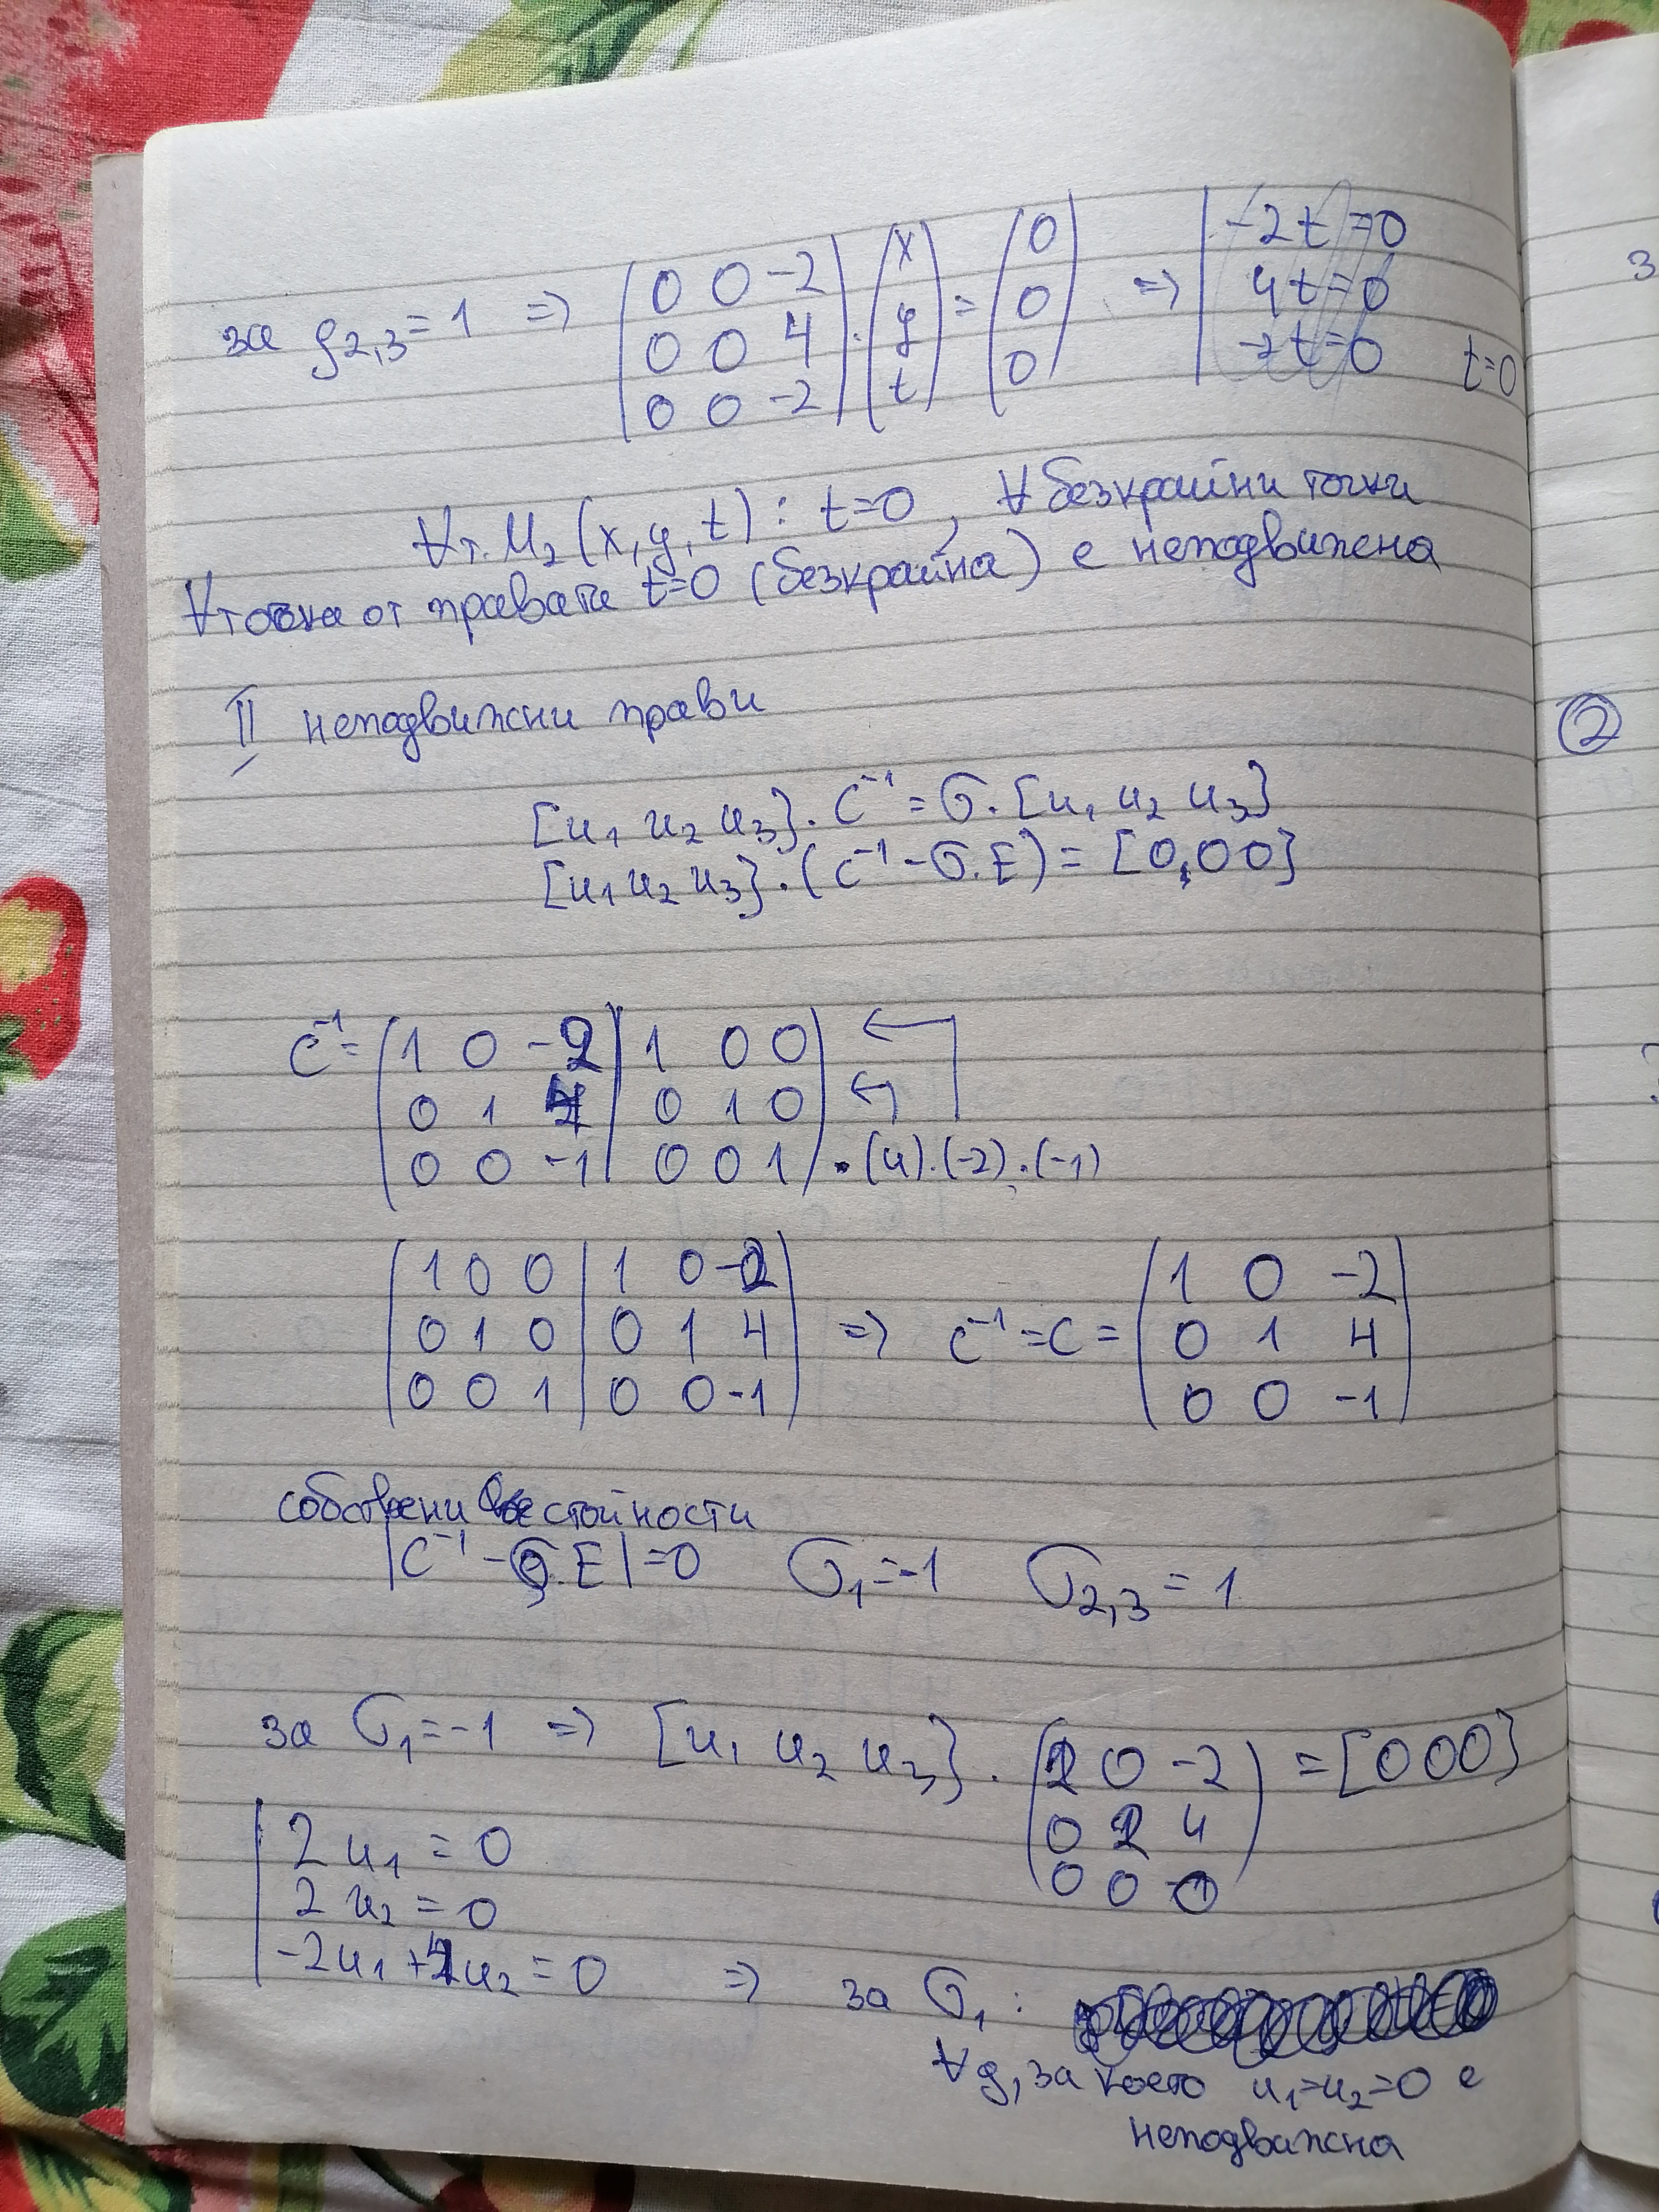 за ρ2,3 = 1 => (0 0 -2) . (x) = (0) => | -2t = 0
(0 0 4) (y) (0) 4t = 0
(0 0 -2) (t) (0) -2t = 0 t=0
∀ т. M2 (x, y, t) : t=0, ∀ безкрайни точки
∀ точка от правата t=0 (безкрайна) е неподвижена
II неподвижни прави
[u1 u2 u3] . C⁻¹ = σ. [u1 u2 u3]
[u1 u2 u3] . (C⁻¹ - σ.E) = [0,0 0]
C⁻¹ = (1 0 -2 | 1 0 0) ←
(0 1 4 | 0 1 0) ←
(0 0 -1 | 0 0 1) .(4).(-2).(-1)
(1 0 0 | 1 0 -2)
(0 1 0 | 0 1 4) => C⁻¹ = C = (1 0 -2)
(0 0 1 | 0 0 -1) (0 1 4)
(0 0 -1)
собствени стойности
|C⁻¹ - σ.E| = 0 σ1 = -1 σ2,3 = 1
за σ1 = -1 => [u1 u2 u3] . (2 0 -2) = [0 0 0]
(0 2 4)
(0 0 0)
| 2u1 = 0
2u2 = 0
-2u1 + 4u2 = 0 => за σ1 :
∀ g, за което u1=u2=0 е
неподвижна
②